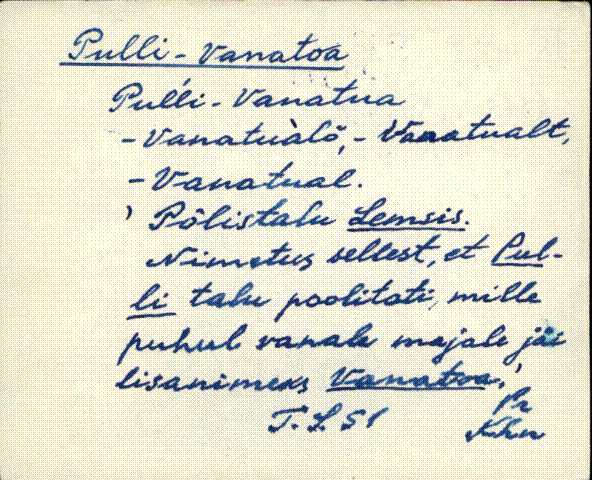 Pulli-Vanatoa
Pulĺi-Vanatua
-Vanatuàlõ, -Vanatualt,
-Vanatual.
' Põlistalu Lemsis.
Nimetus sellest, et Pul-
li talu poolitati, mille
puhul vanale majale jäi
lisanimeks Vanatoa.'
Pr
T. L. 51 Khn